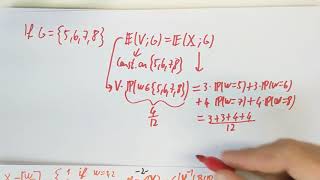 If G = {5,6,7,8}
𝔼(V;G) = 𝔼(X;G)
const. on {5,6,7,8}
V·ℙ(w∈{5,6,7,8}) = 3·ℙ(w=5)+3·ℙ(w=6)
+4·ℙ(w=7)+4·ℙ(w=8)
4/12
= (3+3+4+4)/12
{1 if w=1,2